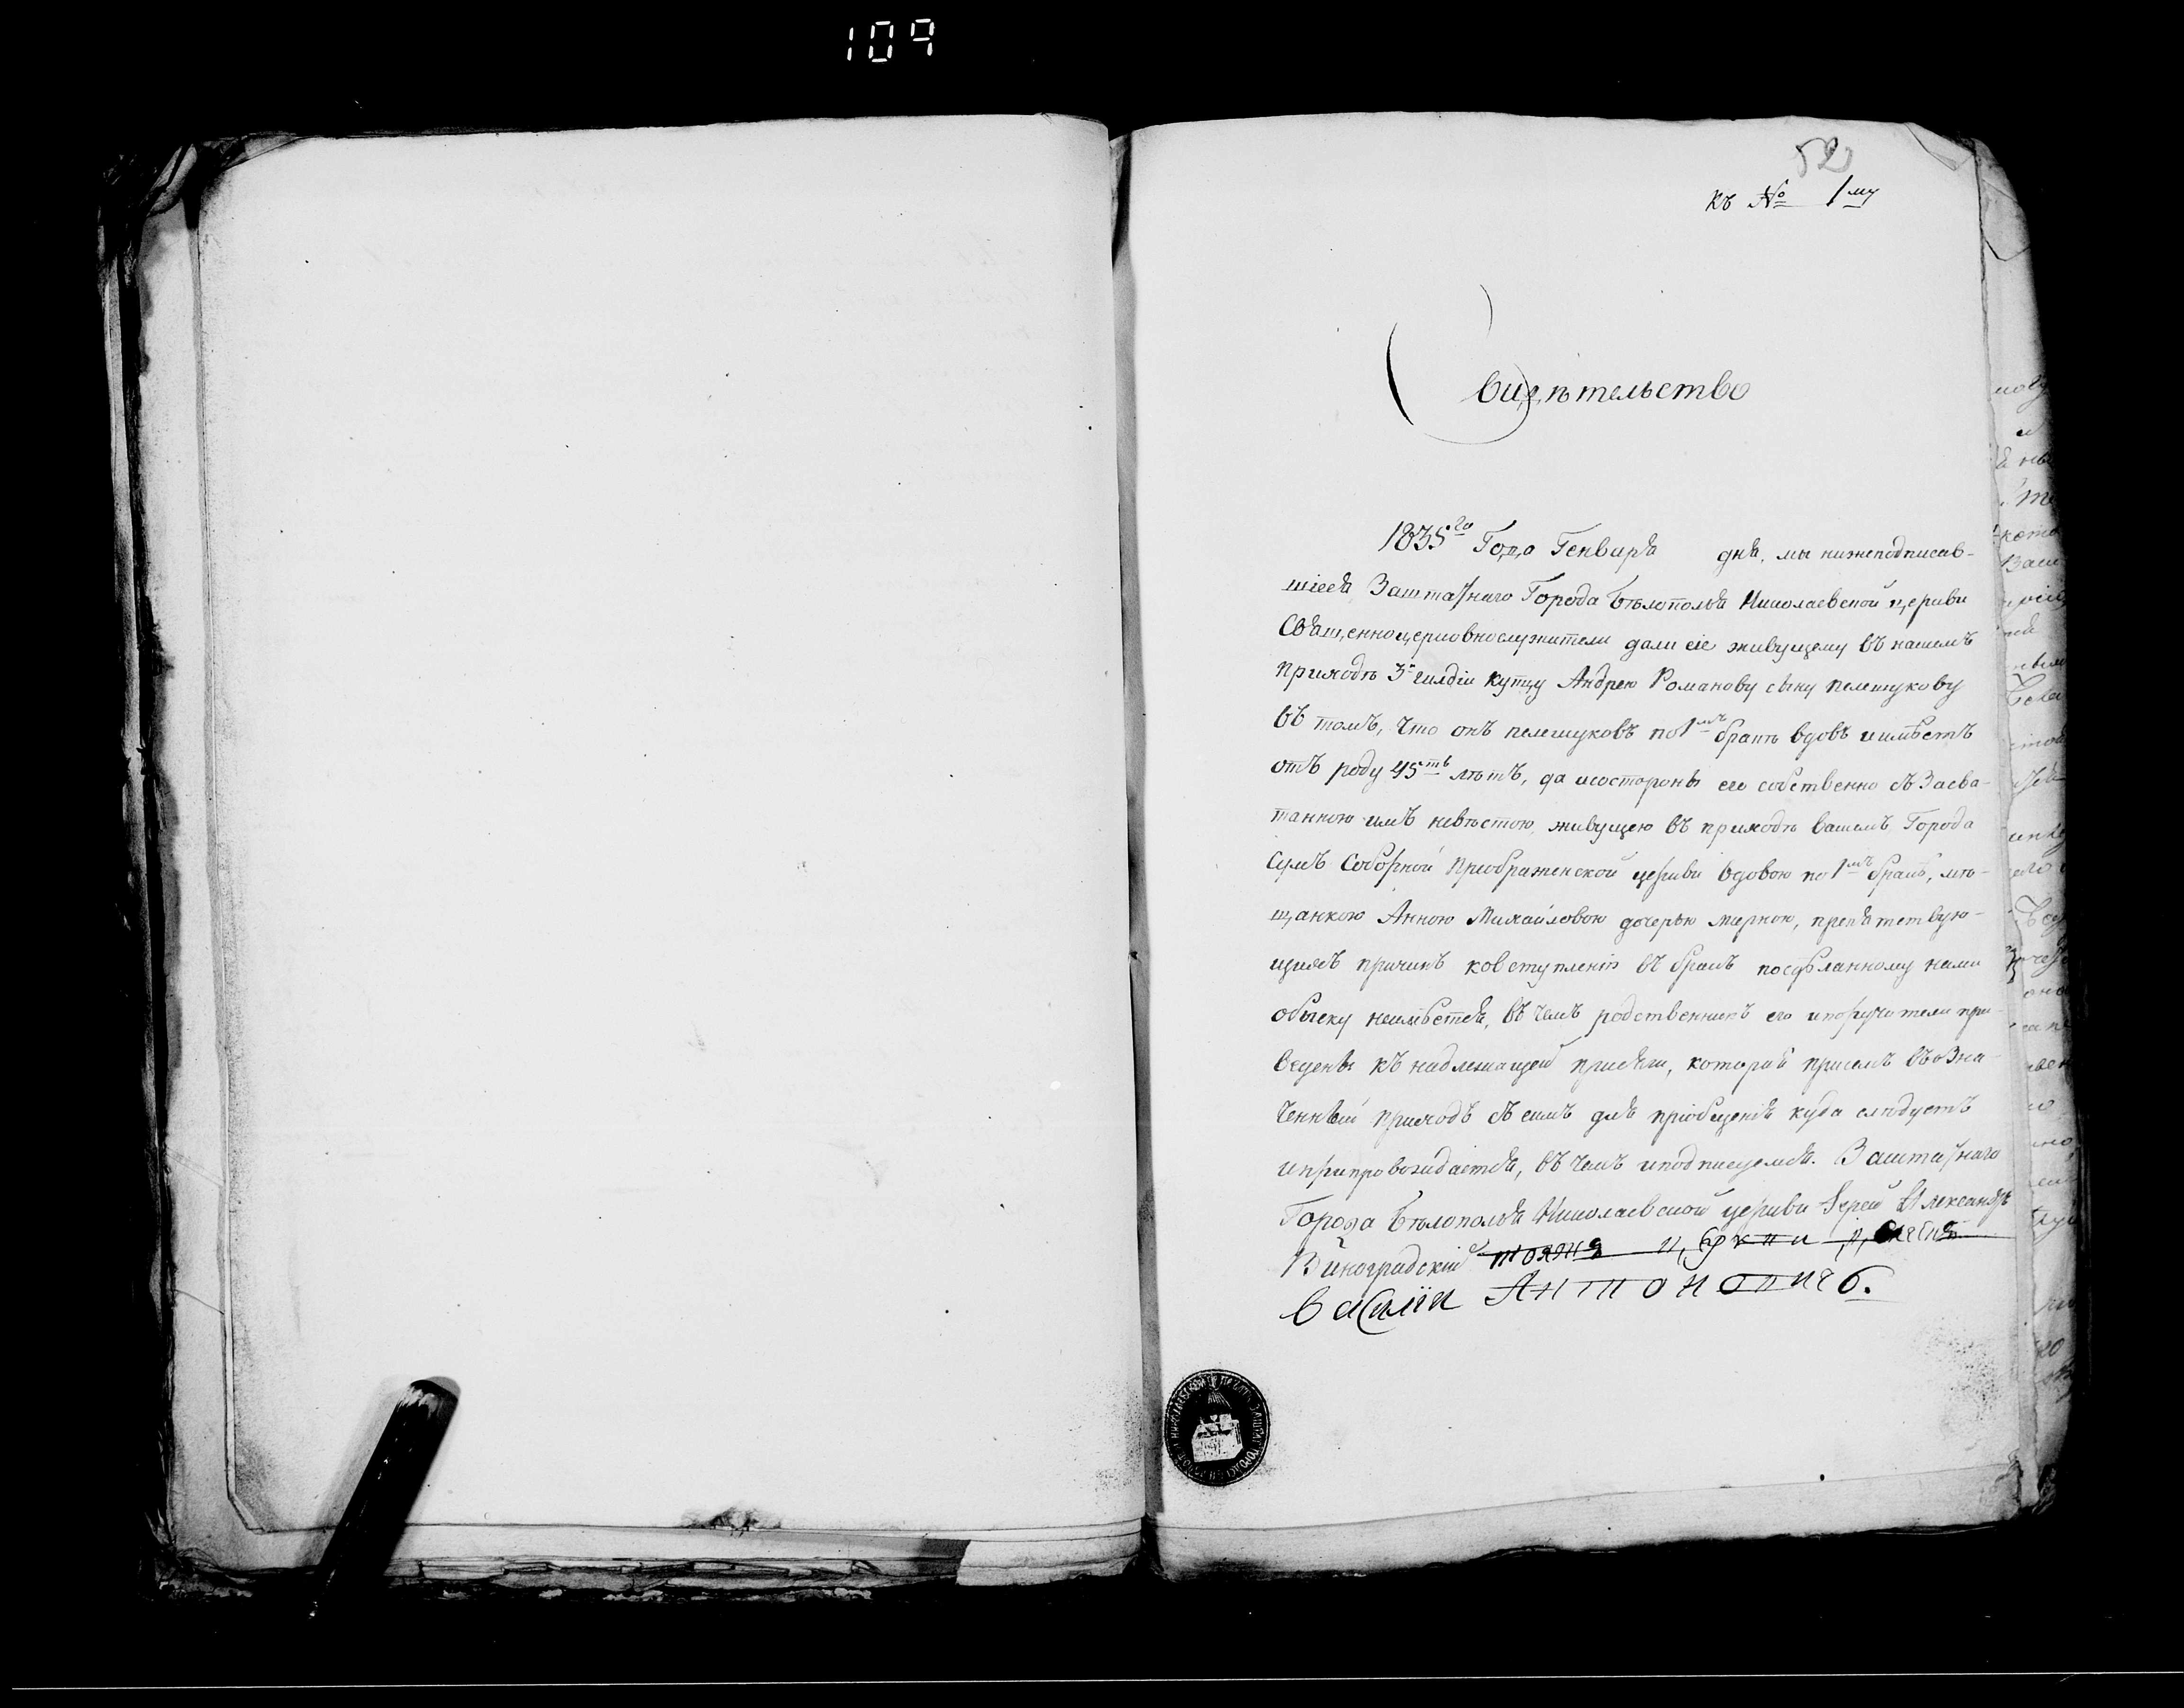 109
52
къ № 1му
Свидѣтельство
1835го Года Генваря дня, мы нижеподписав-
шіеся Заштатнаго Города Бѣлополья Николаевской церкви
Священноцерковнослужители дали сіе живущему въ нашемъ
приходѣ 3й гилдіи купцу Андрею Романову сыну пелешукову
въ томъ, что онъ пелешуковъ по 1мъ бракѣ вдовъ иимѣетъ
отъ роду 45ть лѣтъ, да исостороны его собственно съ Засва-
танною имъ невѣстою, живущею въ приходѣ вашемъ Города
Сумъ Соборной Преображенской церкви вдовою по 1мъ бракѣ, мѣ-
щанкою Анною Михайловою дочерью, препятствую-
щихъ причинъ ковступленію въ бракъ посдѣланному нами
обыску неимѣется, въ чемъ родственникъ его ипоручители при-
ведены къ надлежащей присяги, которая присемъ въ озна-
ченный приходъ съ симъ для пріобщенія куда слѣдуетъ
ипрпровождается, въ чемъ иподписуемся. Заштатнаго
Города Бѣлополья Николаевской церкви Іерей Александръ
Виноградскій тояжъ церкви
василій Антоновичъ.